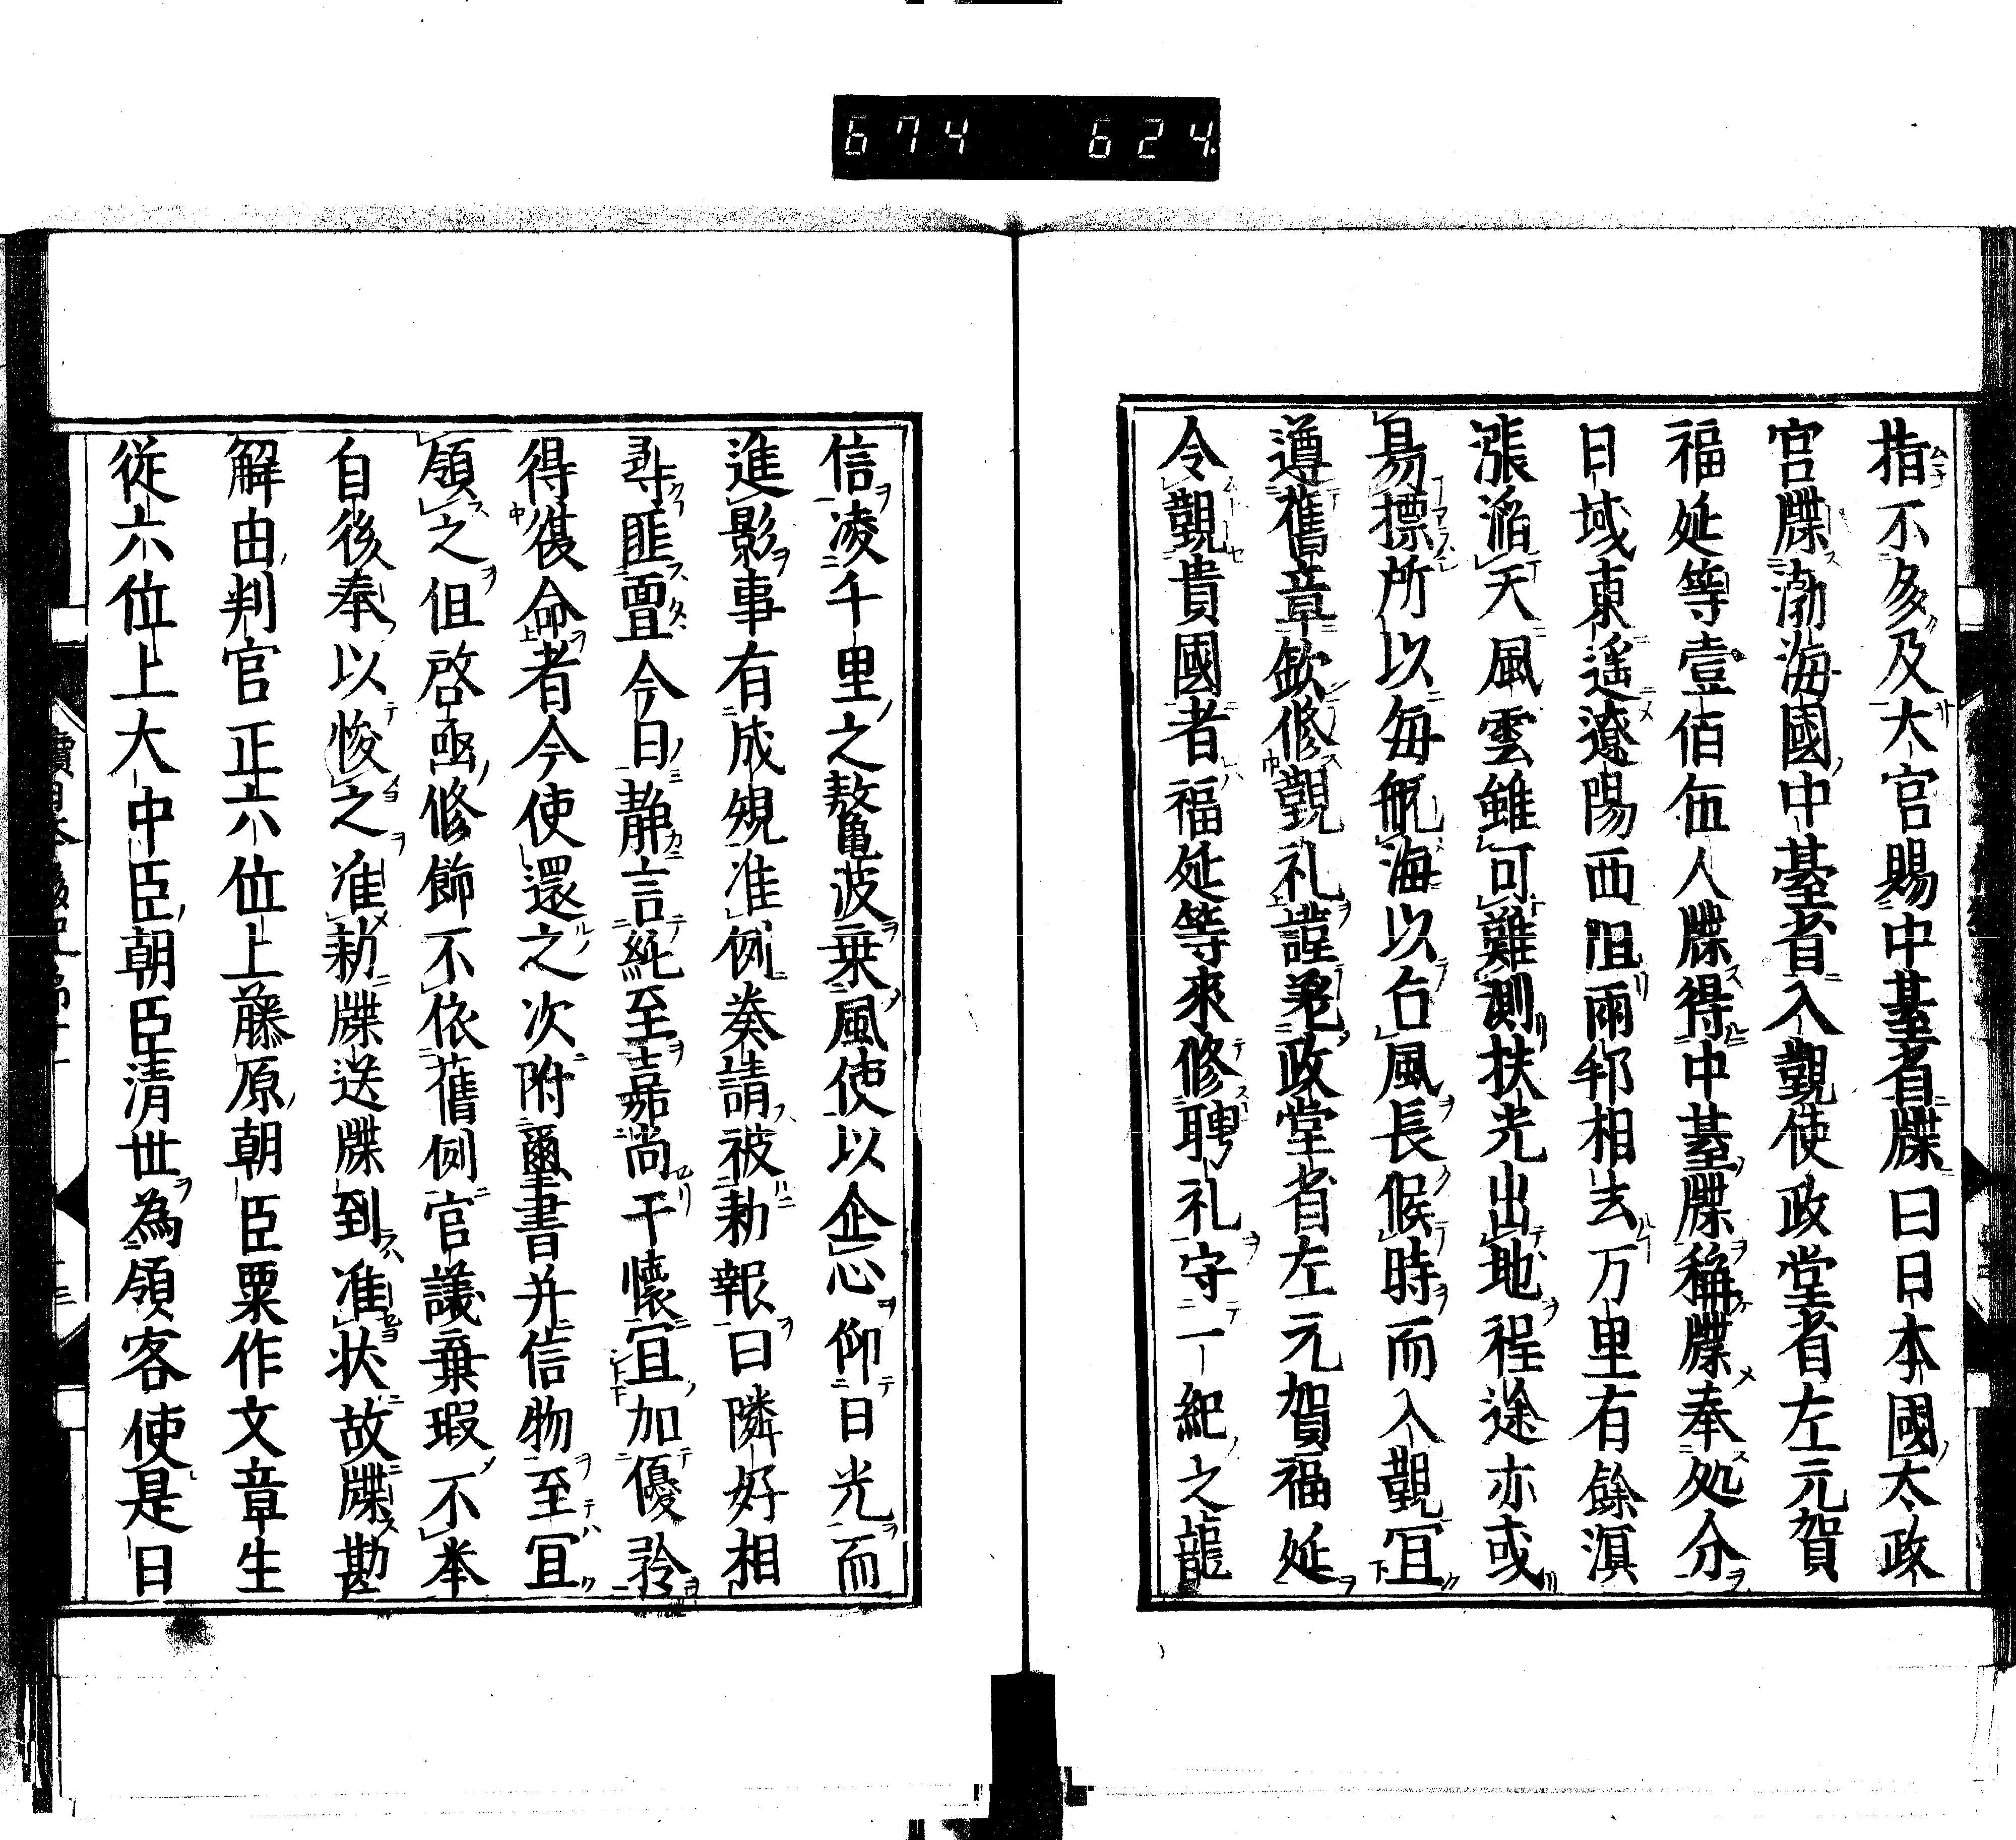 674 624
指不多及大官賜中基省牒曰日本國太政
宮牒渤海國中䑓省入覲使政堂省左元賀
福延等壹佰伍人牒得中䑓牒稱牒奉処分
日域東遥遼陽西阻兩邦相去万里有餘溟
漲滔天風雲雖可難測扶光出地程途亦或
易摽所以毎航海以占風長候時而入覲冝
遵舊章欽修覲礼謹差政堂省左元賀福延
令覲貴國者福延等來修聘礼守一紀之龍
信凌千里之鼇波乗風使以企心仰日光而
進影事有成䂓准例奏請被勅報曰隣好相
尋匪亶今日静言純至嘉尚于懐冝加優矜
得復命者今使還之次附璽書并信物至冝
領之伹啓凾修飾不依舊例官議棄瑕不本
自後奉以悛之准勅牒送牒到准状故牒勘
解由判官正六位上藤原朝臣粟作文章生
従六位上大中臣朝臣清世為領客使是日